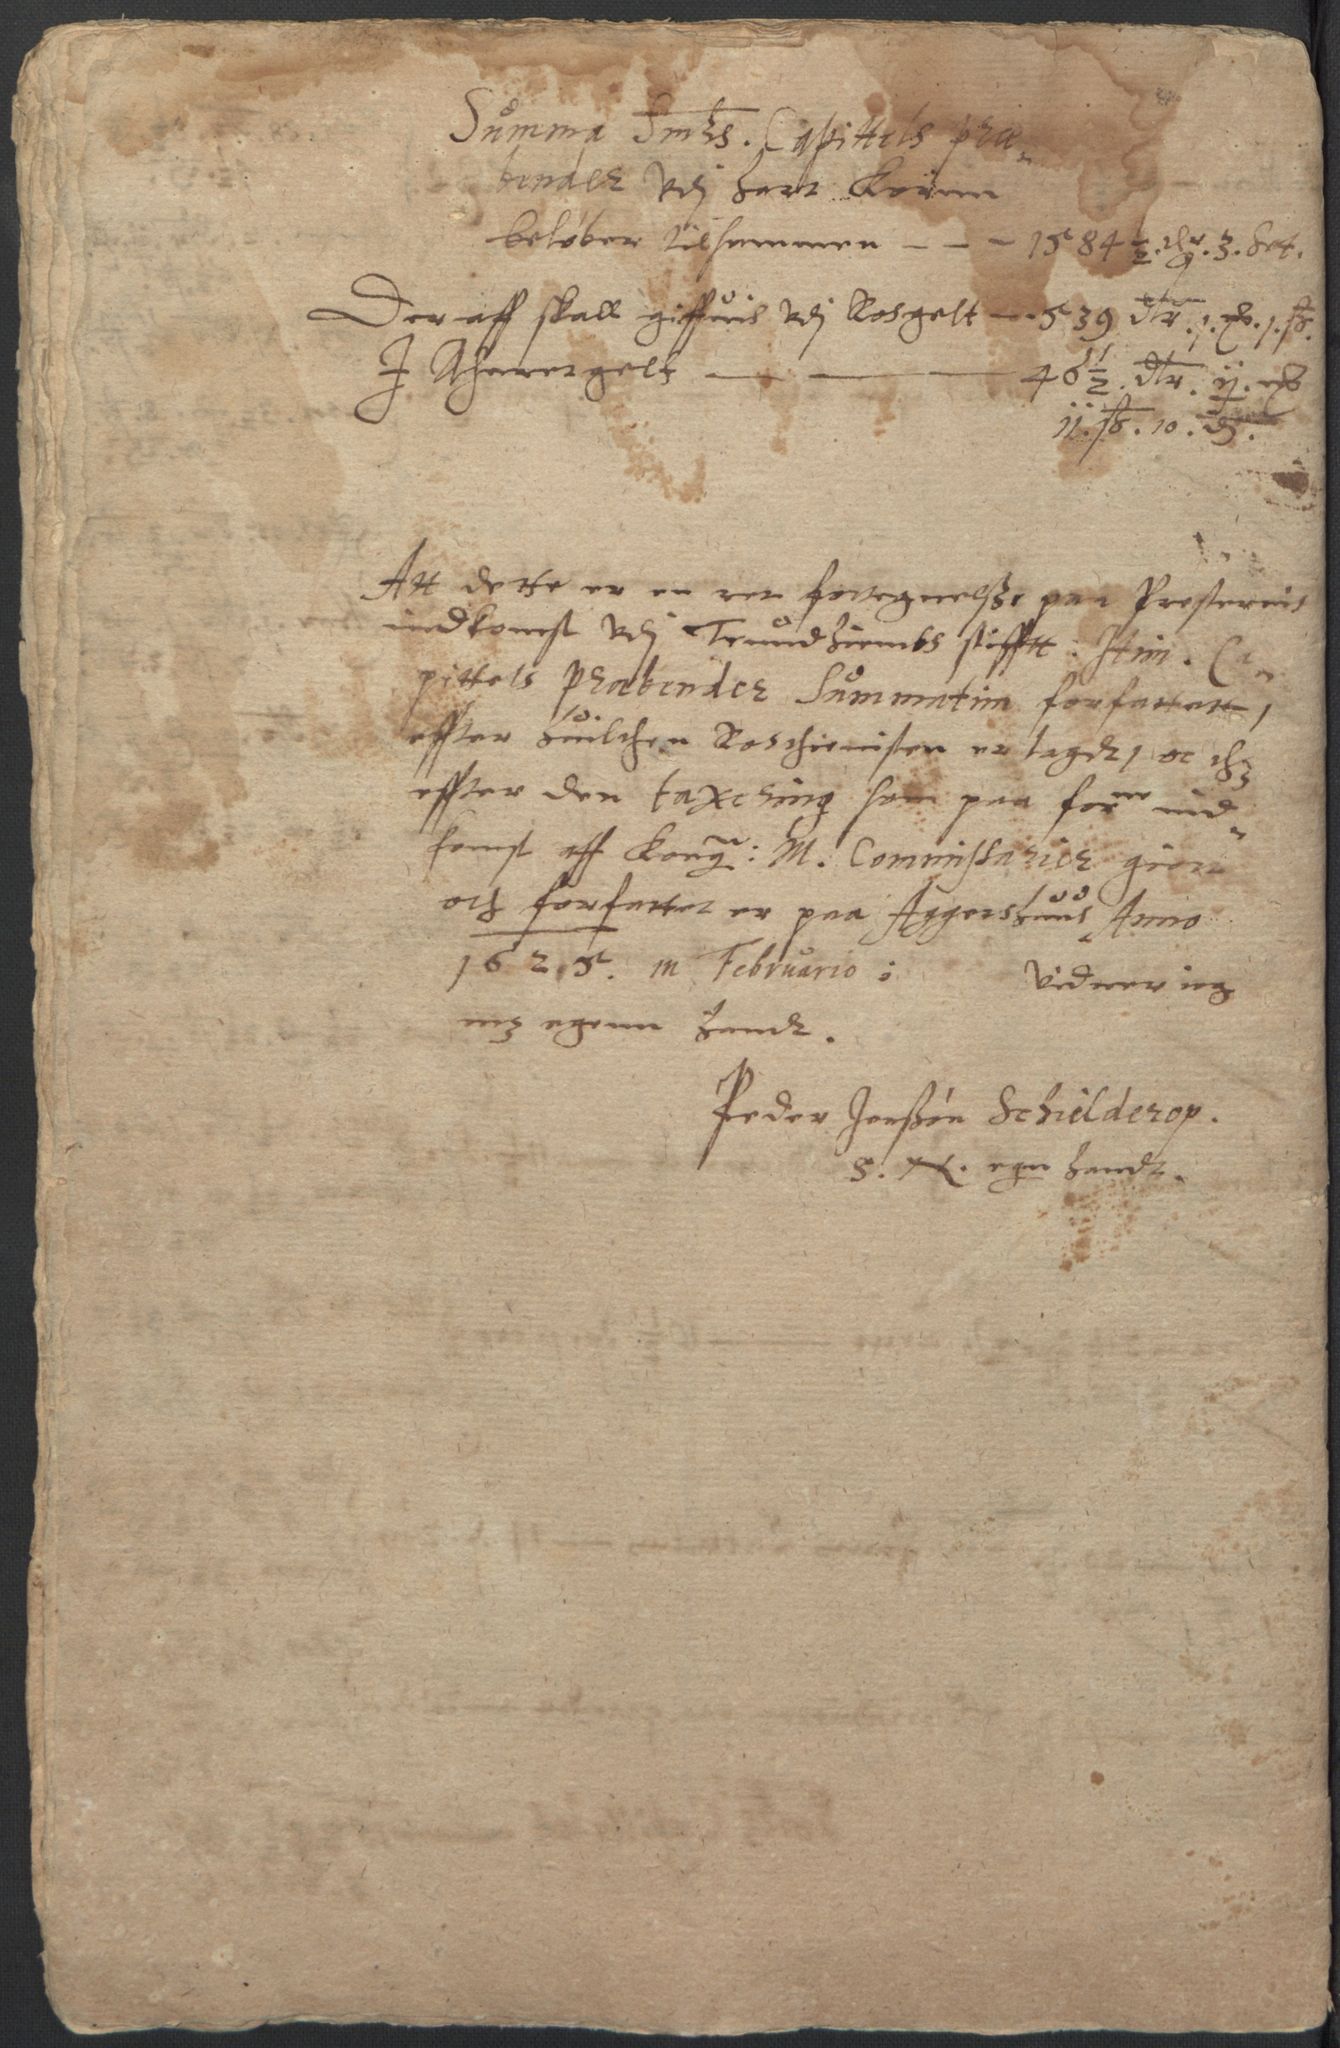 Summa Smrs. Capittels præ-
bender udj hart Kornn
beløber tilsammen - - - 1584 ½. 3. Set.
Der aff skall giffuis udj Rosgelt - 536 dlr. i. 1. sk.
I Aggerergelt - - - 46 ½. dlr. ij.
ij. sk. 10.
Att dette er en ret fortegnelsze paa Presternis
indkomst udj Trundhiembs stifft: Itim. Ca-
pittels Præbender Summatim forfattett,
effter huilchen Roschienisten er lagdt, oc
effter den taxering som paa forne ind-
komst aff Kong: M. Commissarier giort
och forfattet er paa Aggershuus, Anno
1625. in Februario: vidner ieg
mz egenn handt.
Peder Jenszøn Schielderop.
S. N. egn handt.